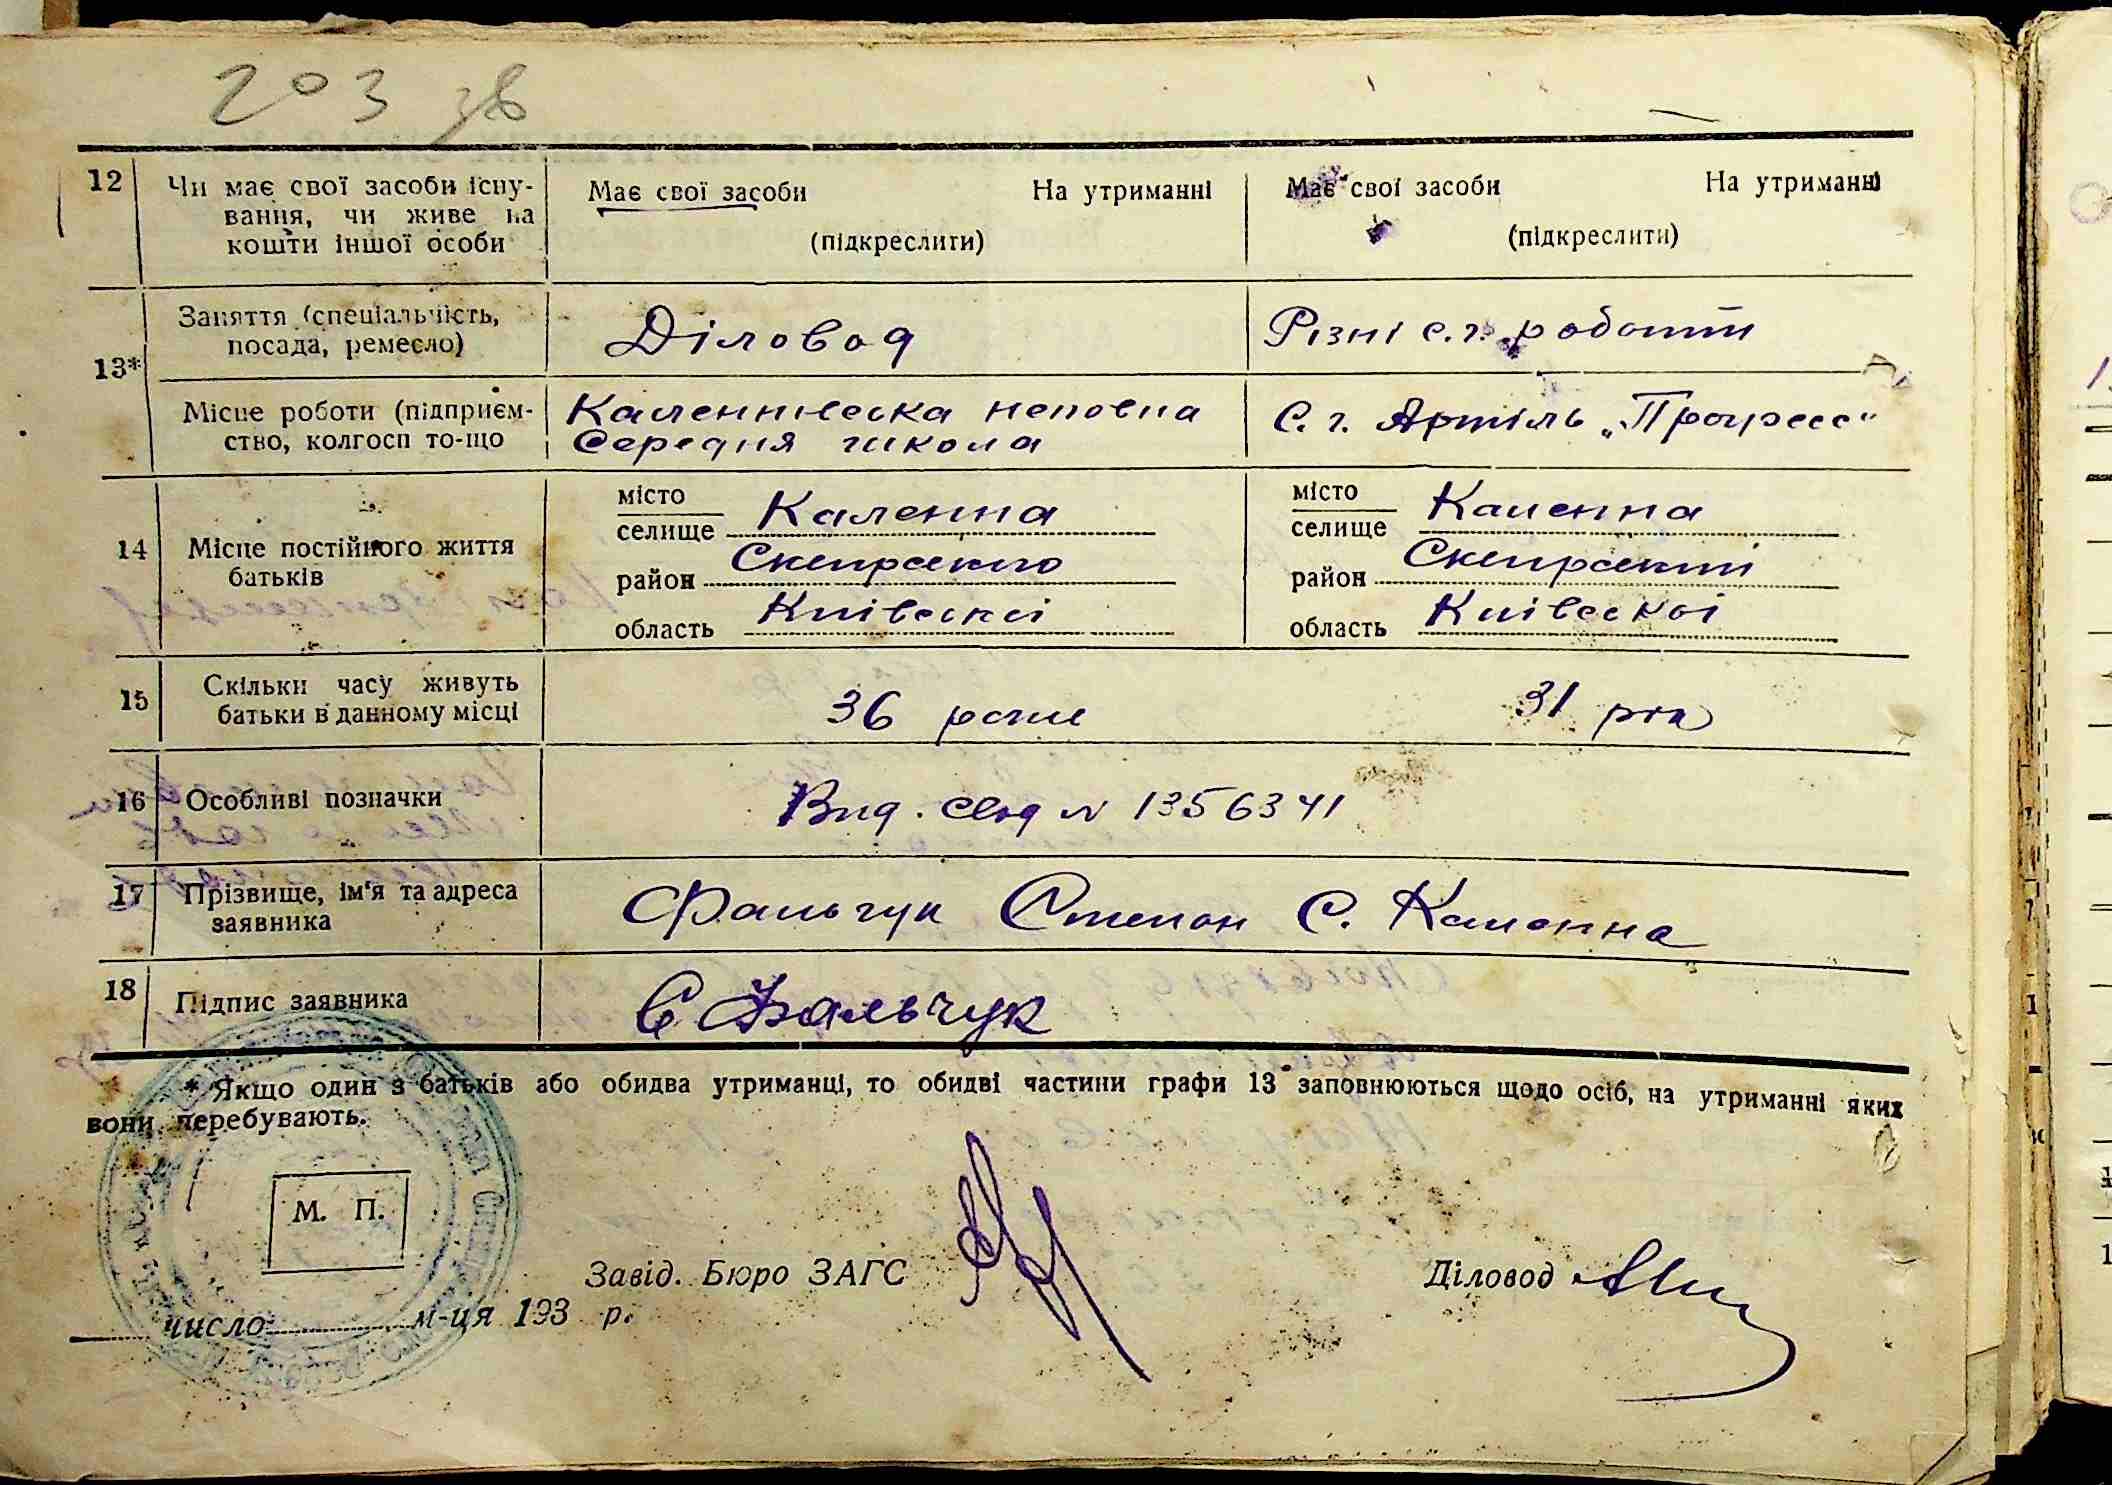 203 зв
12 Чи має свої засоби існу- Має свої засоби На утриманні Має свої засоби На утриманні
вання, чи живе на
кошти іншої особи (підкреслити) (підкреслити)
13* Заняття (спеціальність, Діловод Різні с.г. роботи
посада, ремесло)
Місце роботи (підприєм- Каленнивска неповна С. г. Артіль „Прогресс"
ство, колгосп то-що Середня школа
14 Місце постійного життя місто Каленна місто Каленна
батьків селище селище
район Сквирского район Сквирский
область Київскої область Київскої
15 Скільки часу живуть 36 роки 31 рік
батьки в данному місці
16 Особливі позначки Вид. свод № 1356341
17 Прізвище, ім'я та адреса Фальчук Степан С. Каленна
заявника
18 Підпис заявника С Фальчук
* Якщо один з батьків або обидва утриманці, то обидві частини графи 13 заповнюються щодо осіб, на утриманні яких
вони перебувають.
М. П.
Завід. Бюро ЗАГС Діловод
число м-ця 193 р.